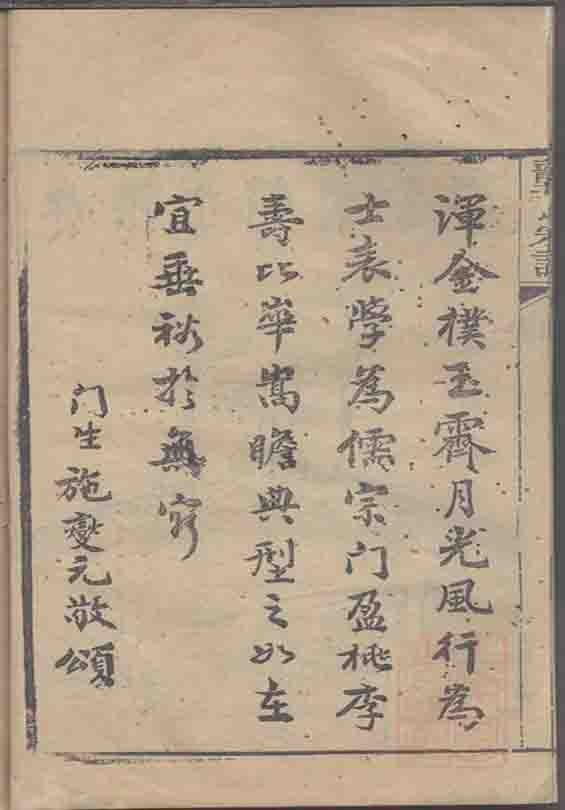 渾金樸玉霽月光風行為
士表學為儒宗门盈桃李
壽比華嵩瞻典型之如在
宜垂裕於無窮
门生施燮元敬頌